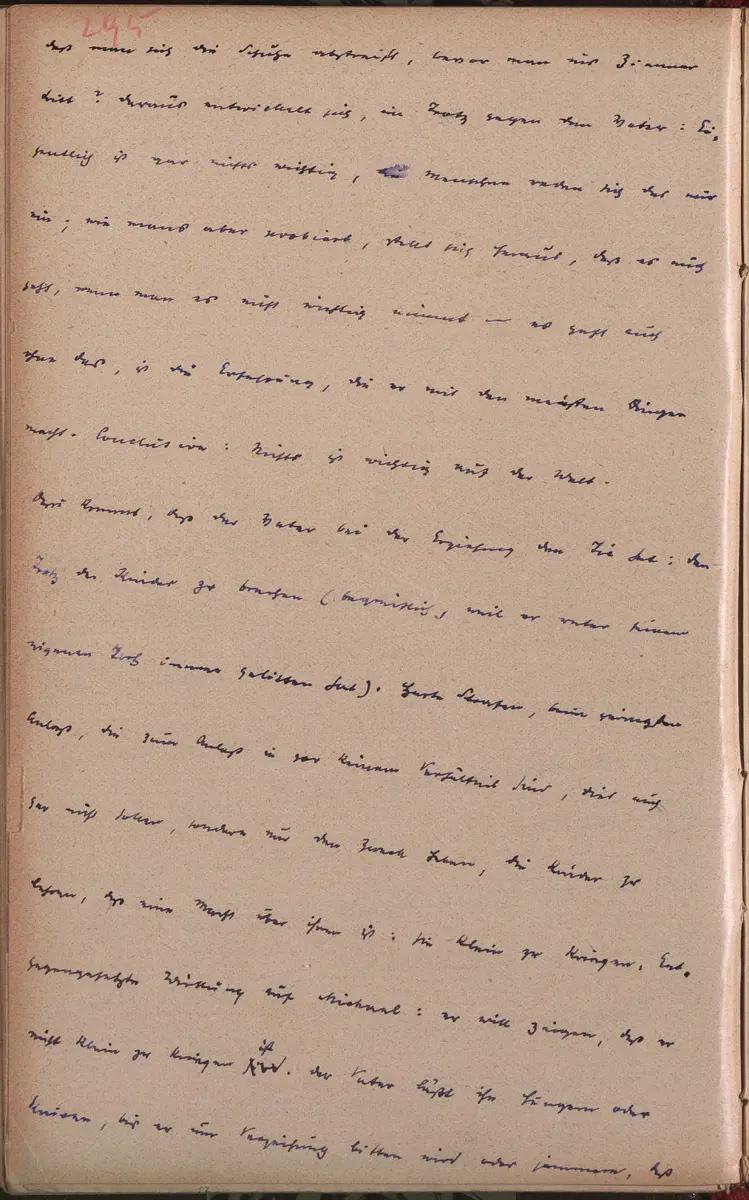 295
daß man sich die Schuhe abstreift, bevor man ins Zimmer
tritt? Daraus entwickelt sich, im Trotz gegen den Vater: Ei-
gentlich ist gar nichts wichtig, die Menschen reden sich das nur
ein; wie mans aber probiert, stellt sich heraus, daß es auch
geht, wenn man es nicht wichtig nimmt — es geht auch
ohne das, ist die Erfahrung, die er mit den meisten Dingen
macht. Conclusion: Nichts ist wichtig auf der Welt.
Dazu kommt, daß der Vater bei der Erziehung den Tic hat: den
Trotz der Kinder zu brechen (begreiflich, weil er unter seinem
eigenen Trotz immer gelitten hat). Harte Strafen, beim geringsten
Anlaß, die zum Anlaß in gar keinem Verhältnis sind, dies auch
gar nicht sollen, sondern nur den Zweck haben, die Kinder zu
lehren, daß eine Macht über ihnen ist: sie klein zu kriegen. Ent-
gegengesetzte Wirkung auf Michael: er will zeigen, daß er
nicht klein zu kriegen ist. Der Vater läßt ihn hungern oder
knieen, bis er um Verzeihung bitten wird oder jammern, daß